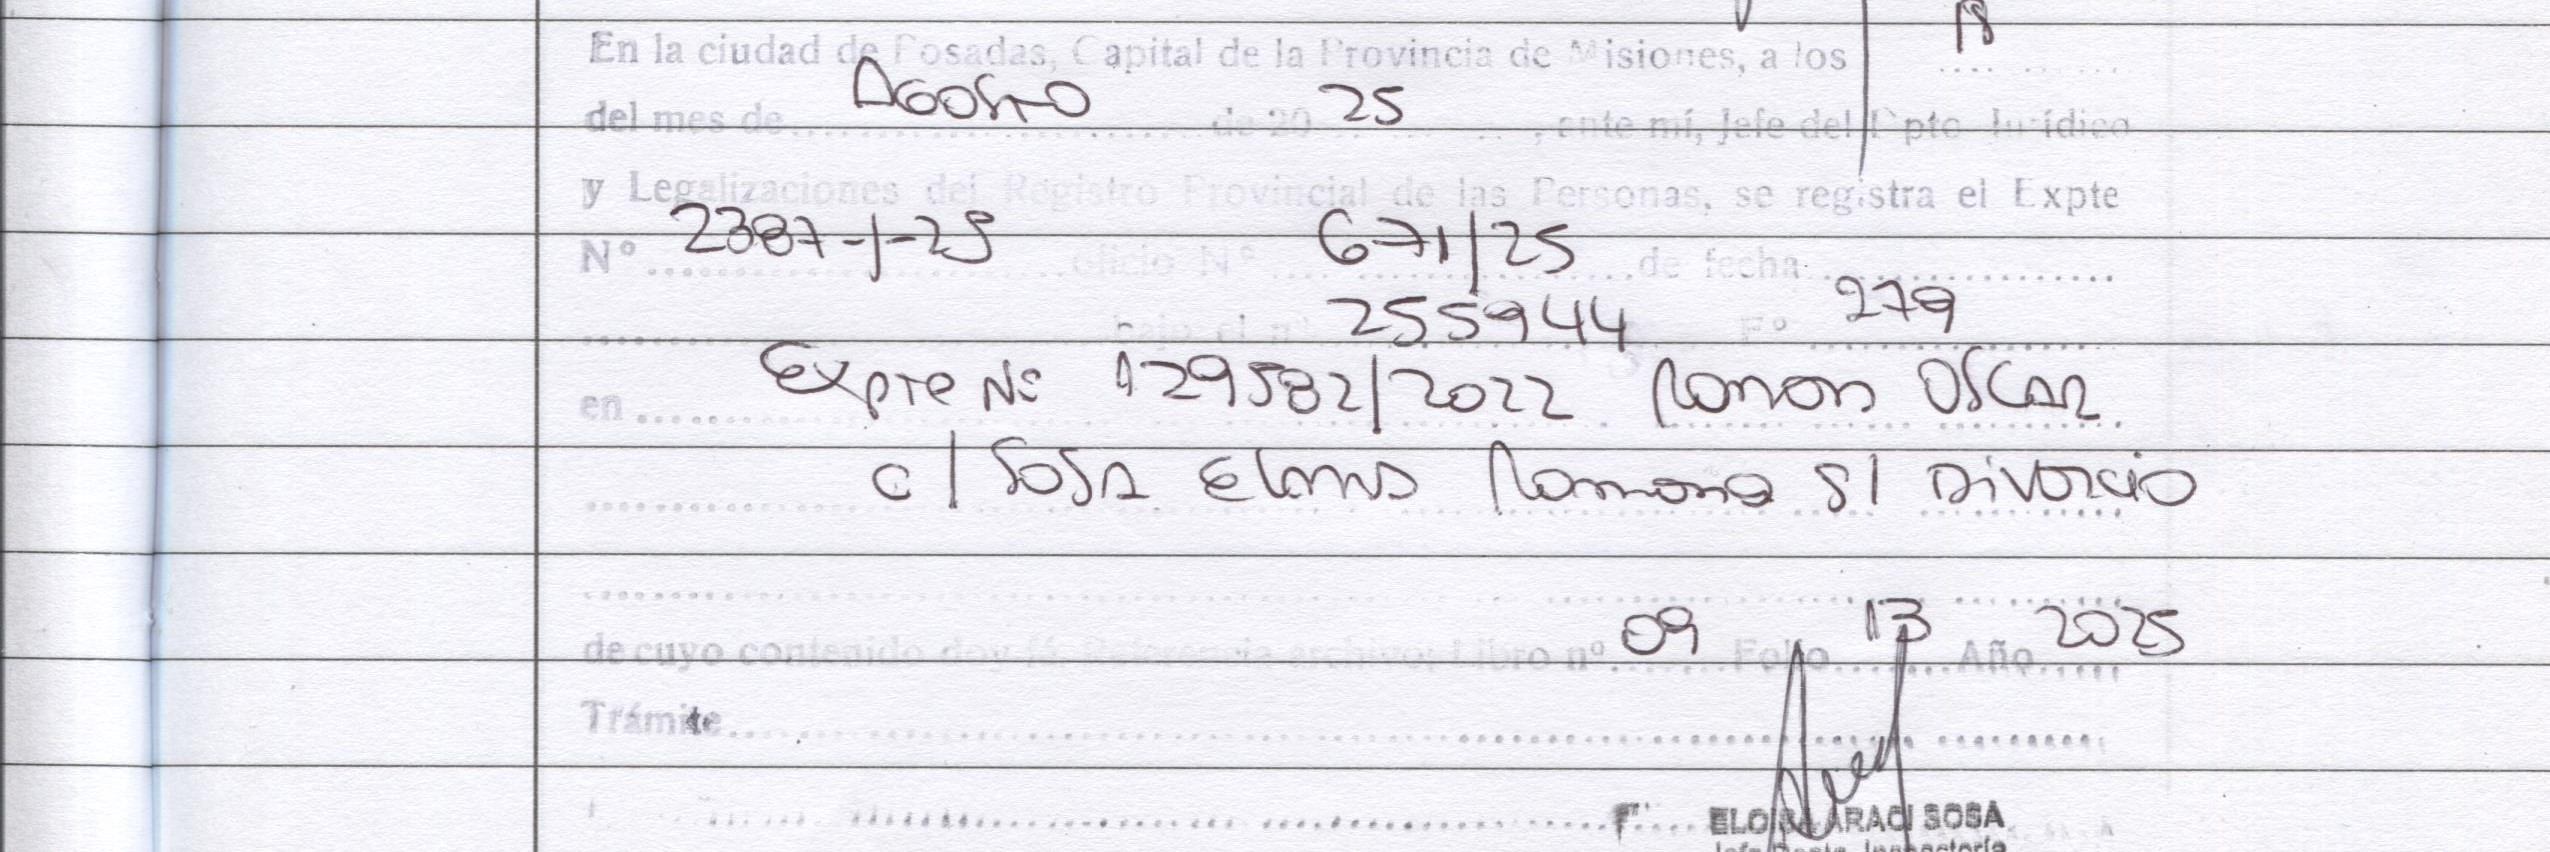 En la ciudad de Posadas, Capital de la Provincia de Misiones, a los 18
del mes de Agosto de 20 25, ante mí, Jefe del Dpto Jurídico
y Legalizaciones del Registro Provincial de las Personas, se registra el Expte
Nº 2387-/-25 oficio Nº 671/25 de fecha
bajo el nº 255944 Fº 279
en Expte Nº 129582/2022 Ramon Oscar
c/ Sosa Ramona s/ Divorcio
de cuyo contenido doy fé. Referencia archivo: Libro nº 09 Folio 13 Año 2025
Trámite
ELOISA ARACI SOSA
Jefa Dpto. Inspectoría